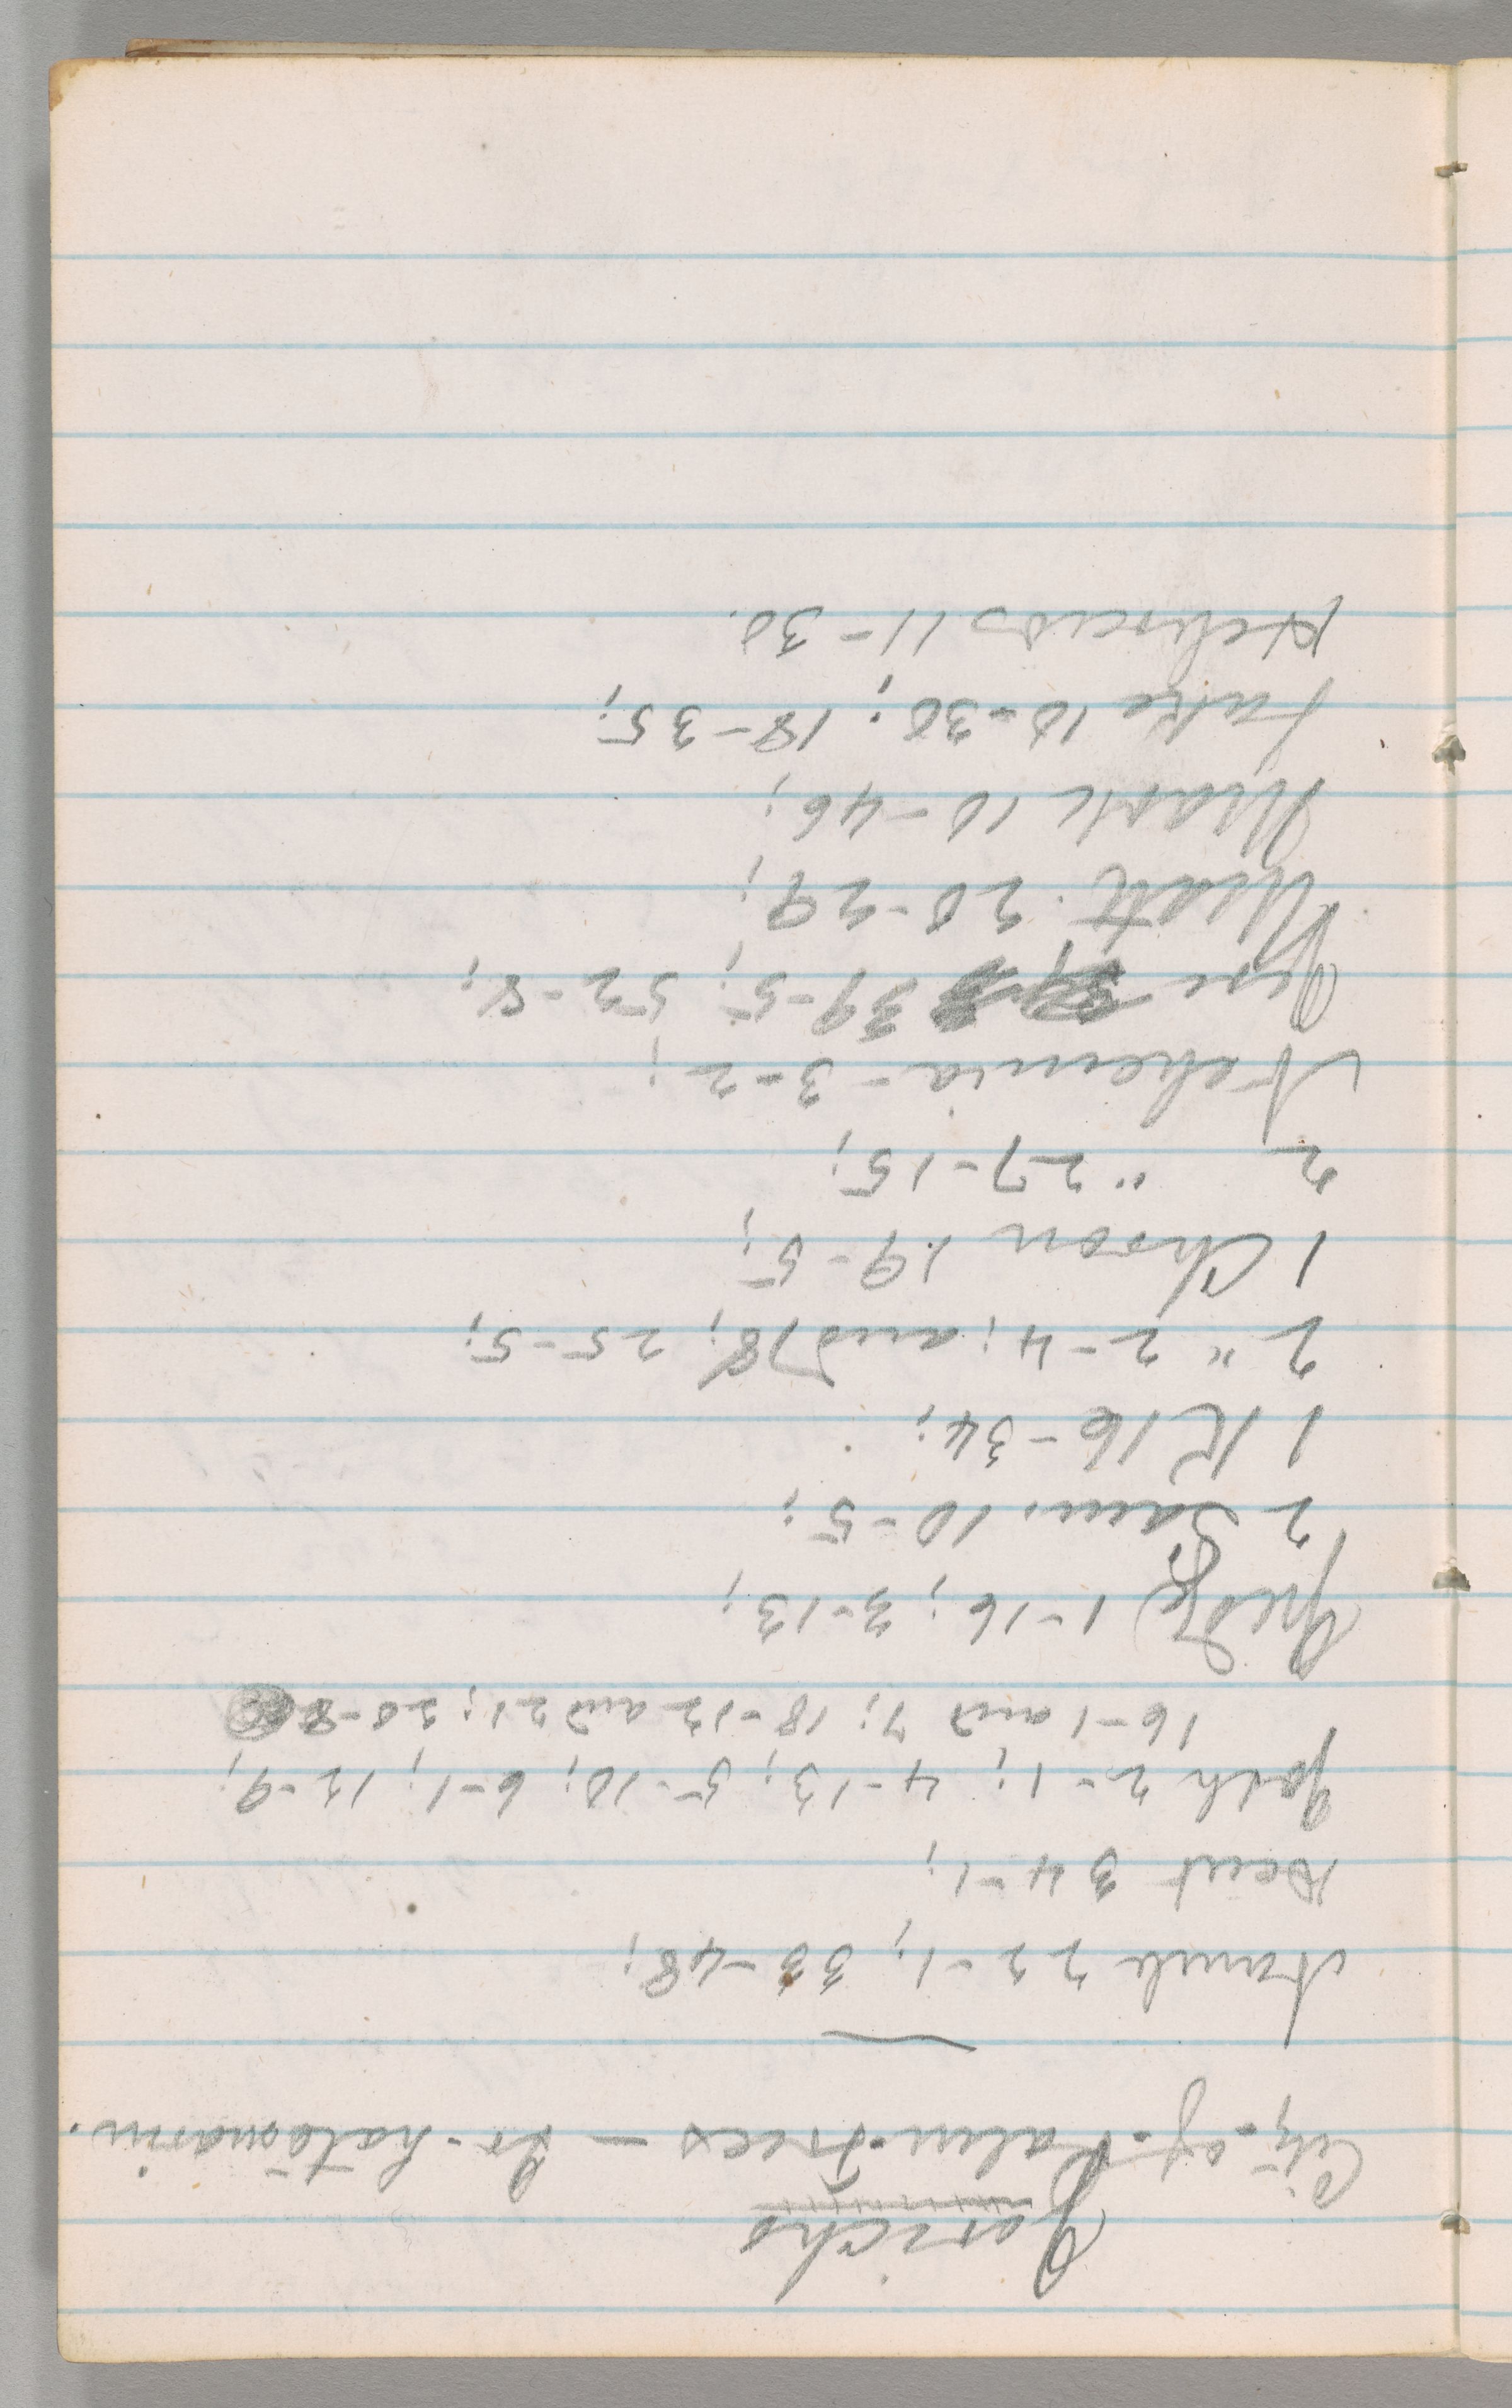 Jericho
City-of-Palm-Trees — Ir-hatômarim.
Numb 22-1; 33-48;
Deut 34-1;
Josh 2-1; 4-13; 5-10; 6-1; 12-9;
16-1 and 7; 18-12 and 21; 20-8
Judg. 1-16; 3-13;
2 Sam. 10-5;
1 K 16-34;
2 " 2-4; and 18; 25-5;
1 Chron 19-5;
2 " 27-15;
Nehemia- 3-2;
Jere 39-5; 52-8;
Matt. 20-29;
Mark 10-46;
Luke 10-30; 18-35;
Hebrews 11-30.